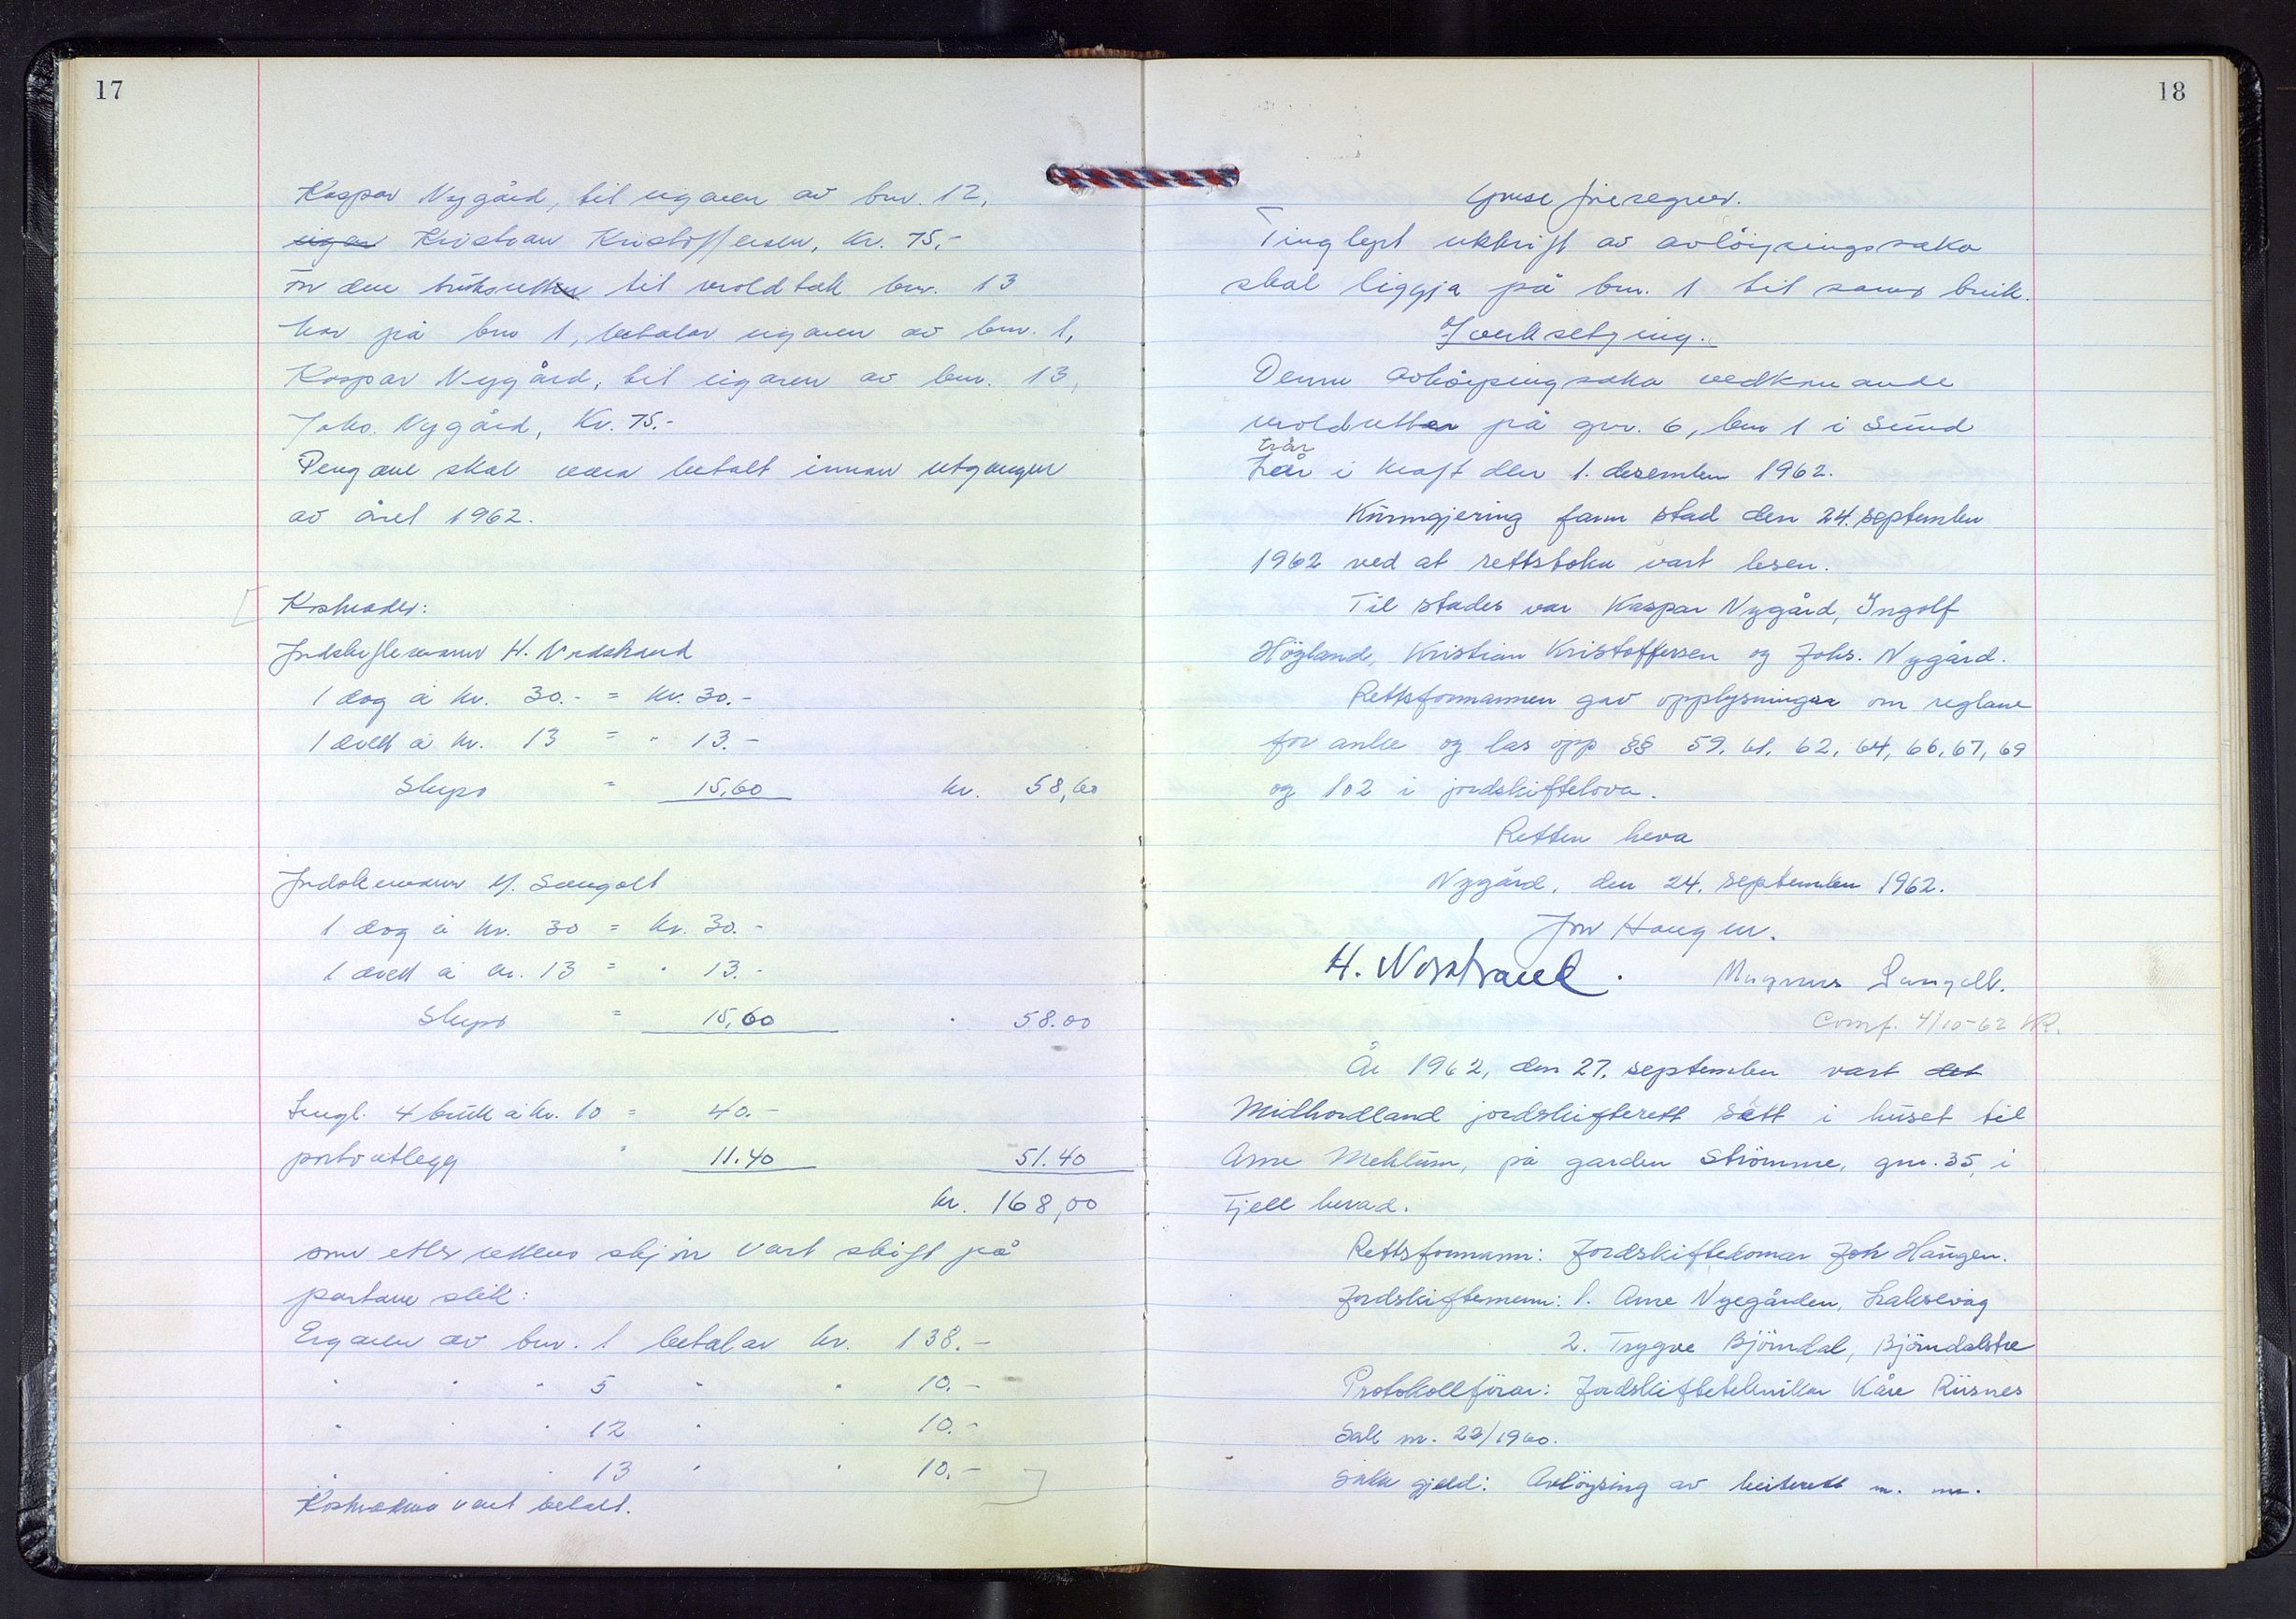 17
Kaspar Nygård, til eigaren av bnr. 12,
eigar Kristian Kristoffersen, kr. 75,-
til moldtak bnr. 13
har på bnr 1, betalar eigaren av bnr. 1,
Kaspar Nygård, til eigaren av bnr. 13,
Johs. Nygård, Kr. 75.-
Pengane skal vera betalt innan utgangen
av året 1962.
Kostnader:
Jordskiftemann H. Nordstrand
1 dag à kr. 30.- = kr. 30.-
1 diett à kr. 13 = " 13.-
Skyss = 15,60 kr. 58,60
Jordskiftemann M. Sangolt
1 dag à kr. 30 = kr. 30.-
1 diett à kr. 13 = " 13.-
Skyss = 15,60 " 58.00
Tingl. 4 bruk à kr. 10 = 40.-
portoutlegg " 11.40 51.40
kr. 168,00
som etter rettens skjøn vart skift på
partane slik:
Eigaren av bnr. 1 betalar kr. 138.-
" " " 5 " " 10.-
" " " 12 " " 10.-
" " " 13 " " 10.-
Kostnadene vart betalt.
18
Grense
Tinglyst utskrift av avløysingssaka
skal liggja på bnr. 1 til sams bruk.
Iverksetjing.
Denne avløysingsaka vedkomande
moldretter på gnr. 6, bnr 1 i Sund
trår
i kraft den 1. desember 1962.
Kunngjering fann stad den 24. september
1962 ved at rettsboka vart lesen.
Til stades var Kaspar Nygård, Ingolf
Högland, Kristian Kristoffersen og Johs. Nygård.
Rettsformannen gav opplysningar om reglane
for anke og las opp §§ 59, 61, 62, 64, 66, 67, 69
og 102 i jordskiftelova.
Retten heva
Nygård, den 24. september 1962.
Jon Haugen.
H. Nordstrand. Magnus Sangolt.
Comf. 4/10-62 KR.
År 1962, den 27. september vart det
Midhordland jordskifterett sett i huset til
Arne Mehlum, på garden Strömme, gnr. 35, i
Fjell herad.
Rettsformann: Jordskiftedomar Jon Haugen.
Jordskiftemenn: 1. Arne Nyegården, Laksevåg
2. Trygve Björndal, Björndalstre
Protokollförar: Jordskifteteknikar Kåre Risnes
Sak nr. 22/1960.
Saka gjeld: Avlöysing av beiterett m. m.